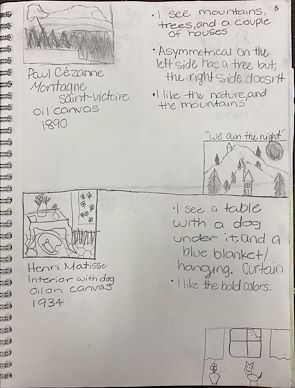 8
• I see mountains,
trees, and a couple
of houses
• Asymmetrical on the
left side has a tree but,
the right side doesnt
• I like the nature, and
the mountains
Paul Cézanne
Montagne
Saint-victoire
oil canvas
1890
"We own the night"
• I see a table
with a dog
under it, and a
blue blanket/
hanging. Curtain
• I like the bold colors.
Henri Matisse
Interior with dog
oil on canvas
1934